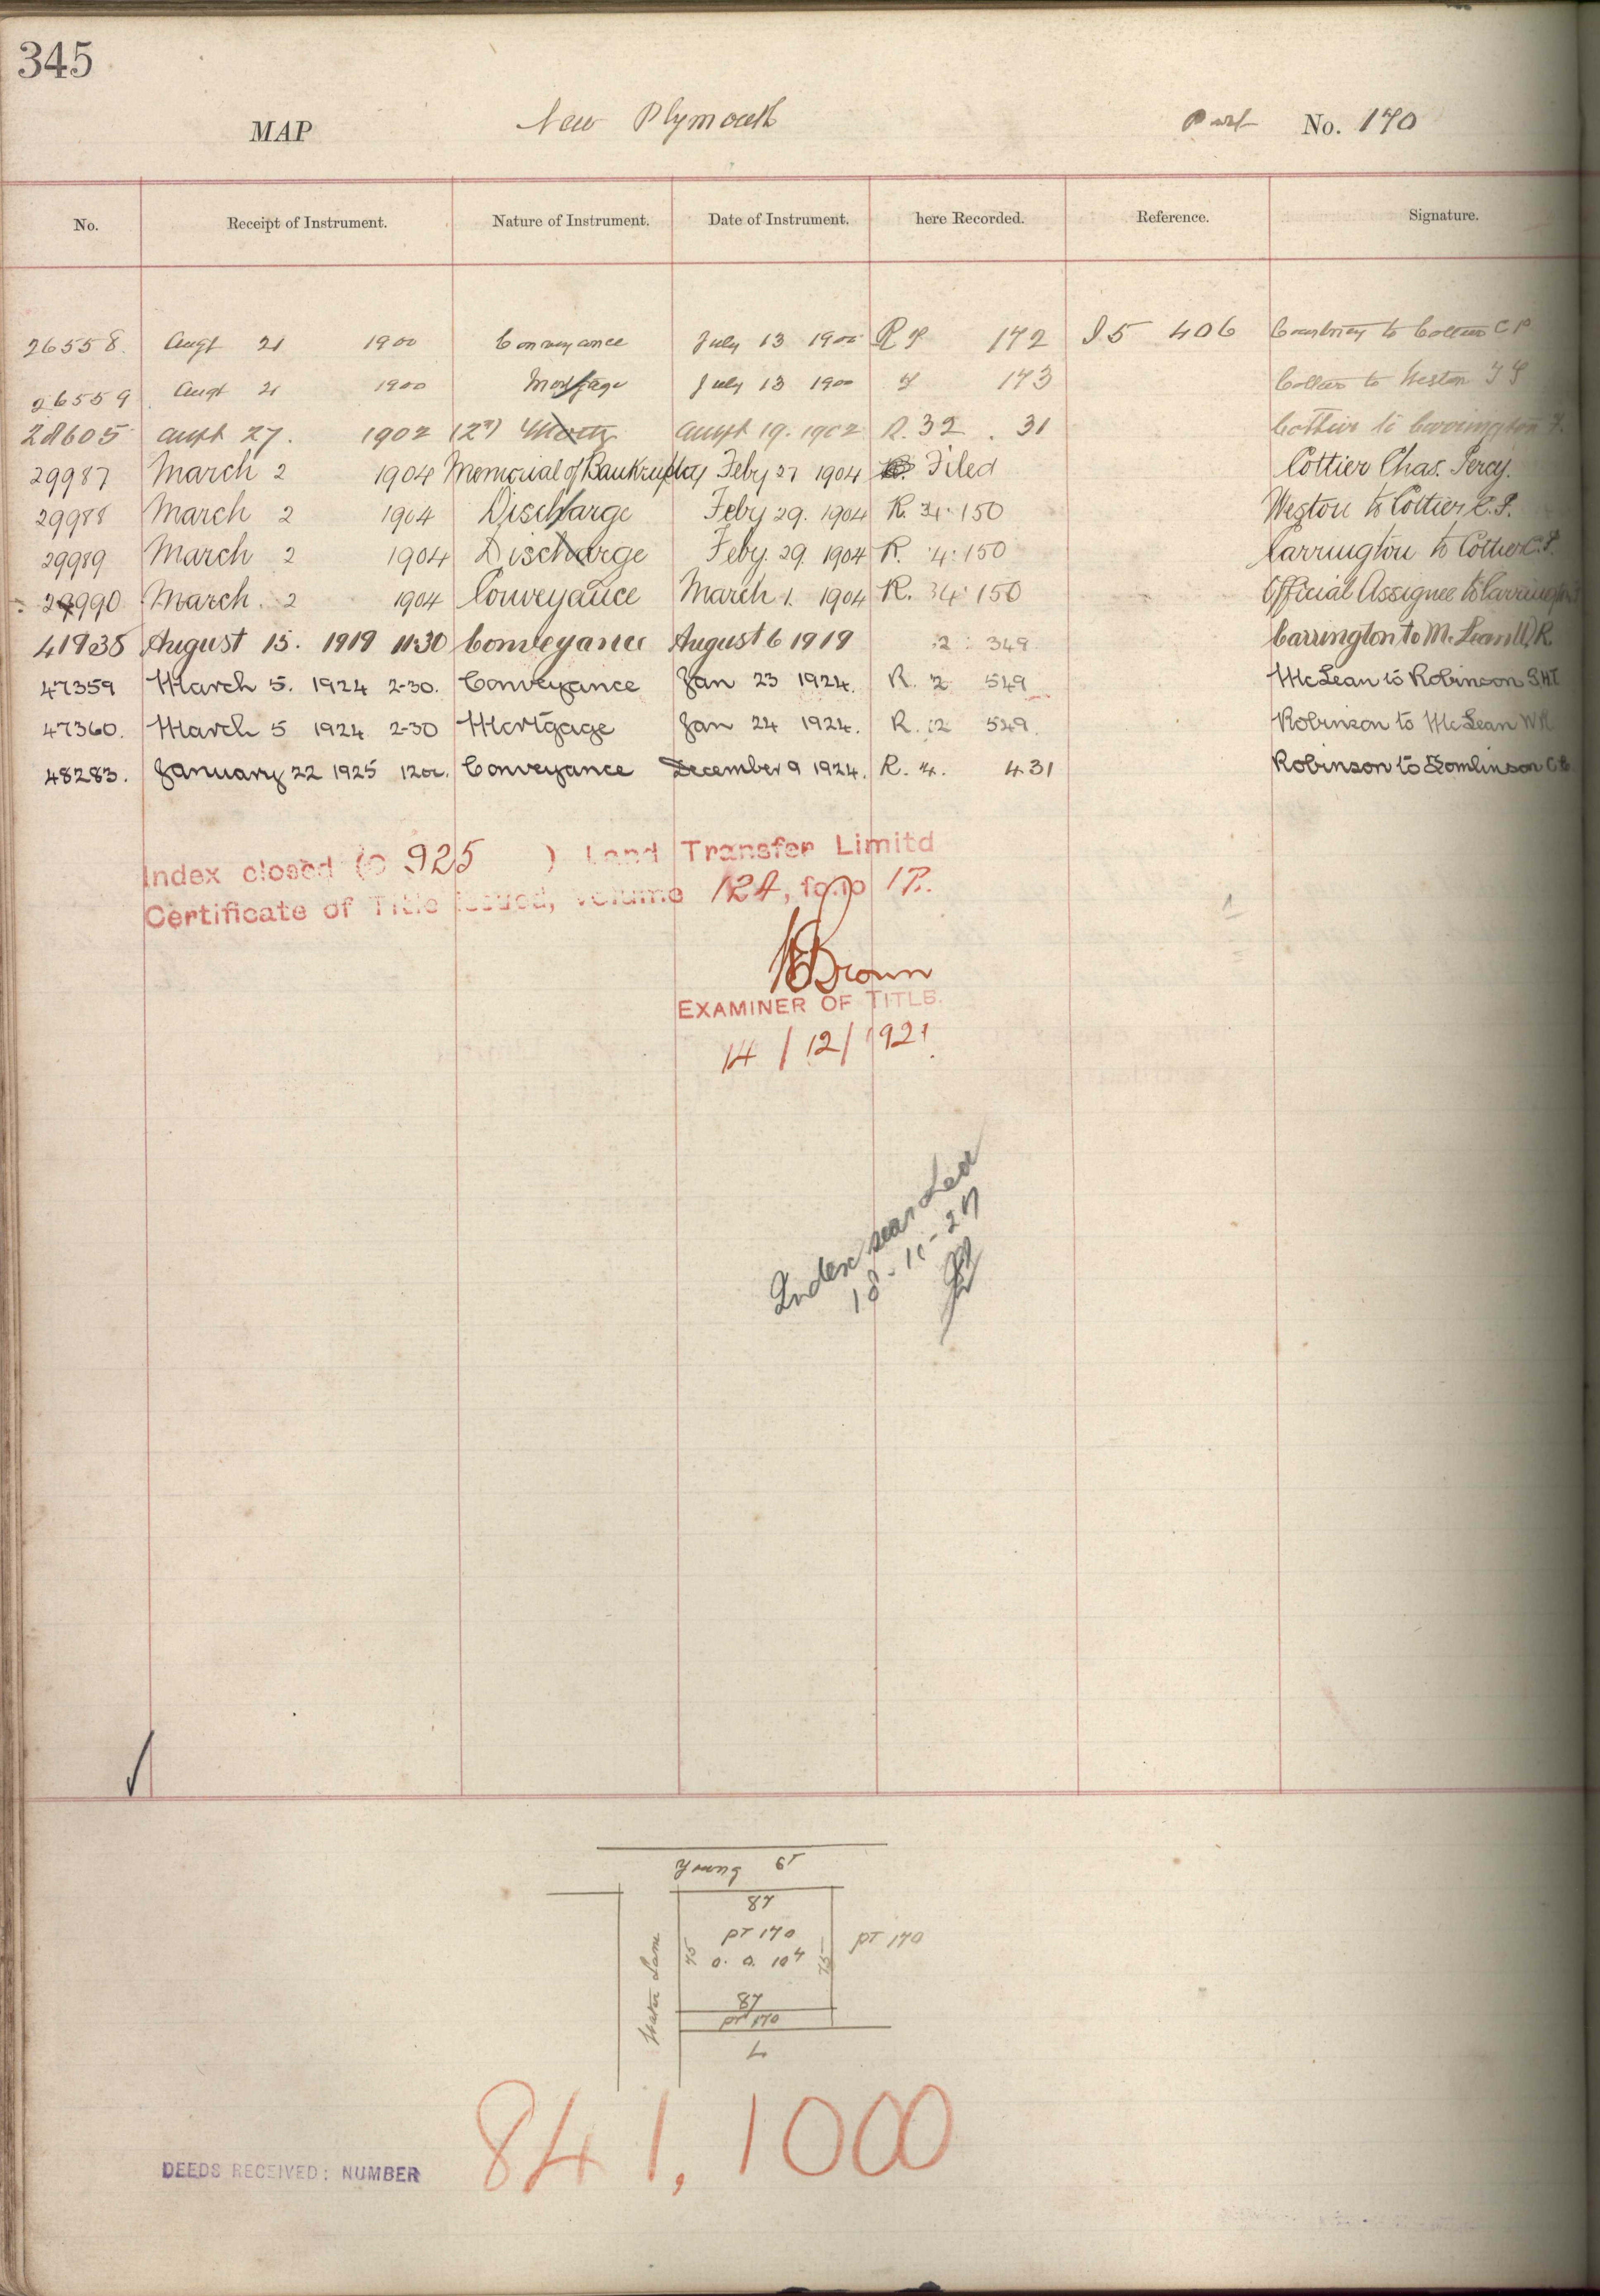 345
MAP New Plymouth Part No. 170
No. Receipt of Instrument. Nature of Instrument. Date of Instrument. here Recorded. Reference. Signature.
26558. Augt 21 1900 Conveyance July 13 1900 R 172 I5 406 to Cottier C P
26559 Augt 21 1900 Mortgage July 13 1900 173 Cottier to Weston
28605 Augt 27. 1902 (2nd) Mortg Augst 19. 1902 R. 32. 31 Cottier to Carrington
29987 March 2 1904 Memorial of Bankruptcy Feby 27 1904 Filed Cottier Chas. Percy.
29988 March 2 1904 Discharge Feby 29. 1904 R. 34. 150 Weston to Cottier C.P.
29989 March 2 1904 Discharge Feby. 29. 1904 R. 4. 150 Carrington to Cottier C.P.
29990 March. 2 1904 Conveyance March 1. 1904 R. 34. 150 Official Assignee to Carrington
41935 August 15. 1919 11.30 Conveyance August 6 1919 2 : 349 Carrington to McLean W.R.
47359 March 5. 1924 2-30. Conveyance Jan 23 1924. R. 2 549 McLean to Robinson S.H.T
47360. March 5 1924 2-30 Mortgage Jan 24 1924. R. 12 549. Robinson to McLean WR
48283. January 22 1925 12oc. Conveyance December 9 1924. R. 4. 431 Robinson to Tomlinson C
Index closed (C 925 ) Land Transfer Limitd
Certificate of Title issued, volume 124, folio 12.
Brown
EXAMINER OF TITLE.
14/12/1921
Index searched
18-11-27
Young St
87
pt 170
75 0. 0. 10 4 75
pt 170
Water Lane
87
pt 170
L
841,1000
DEEDS RECEIVED: NUMBER